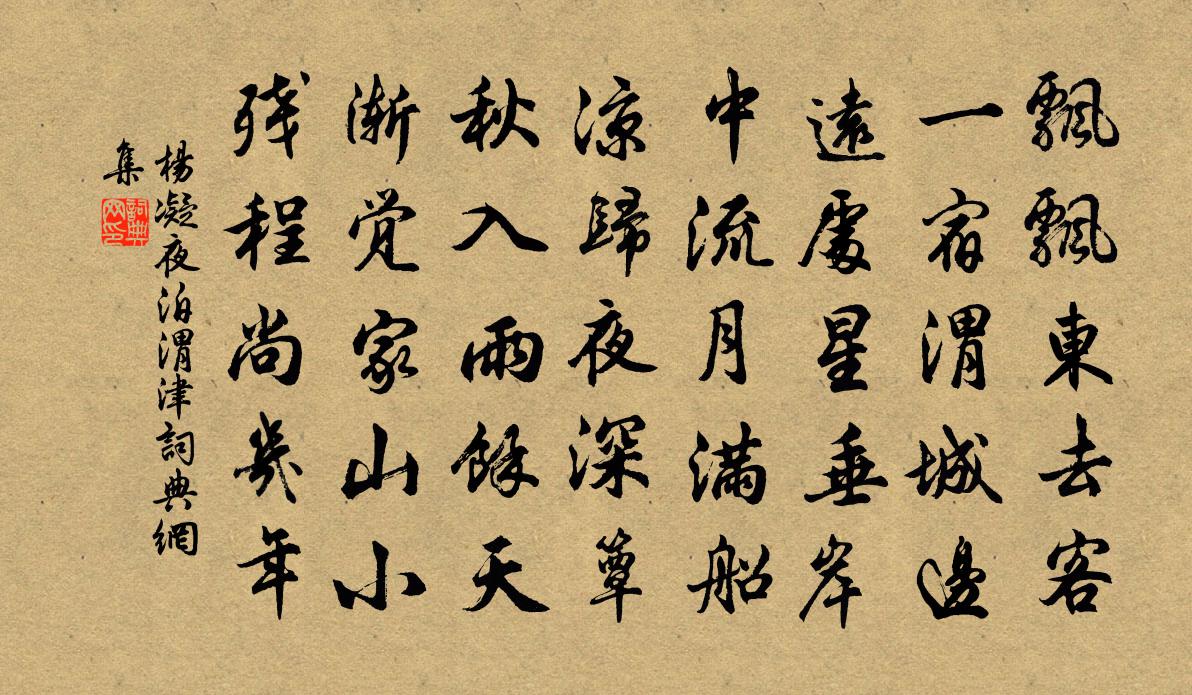 飄飄東去客
一宿渭城邊
遠處星垂岸
中流月滿船
涼歸夜深簟
秋入雨餘天
漸觉家山小
残程尚幾年
楊凝夜泊渭津詞典網
集
詞典网印